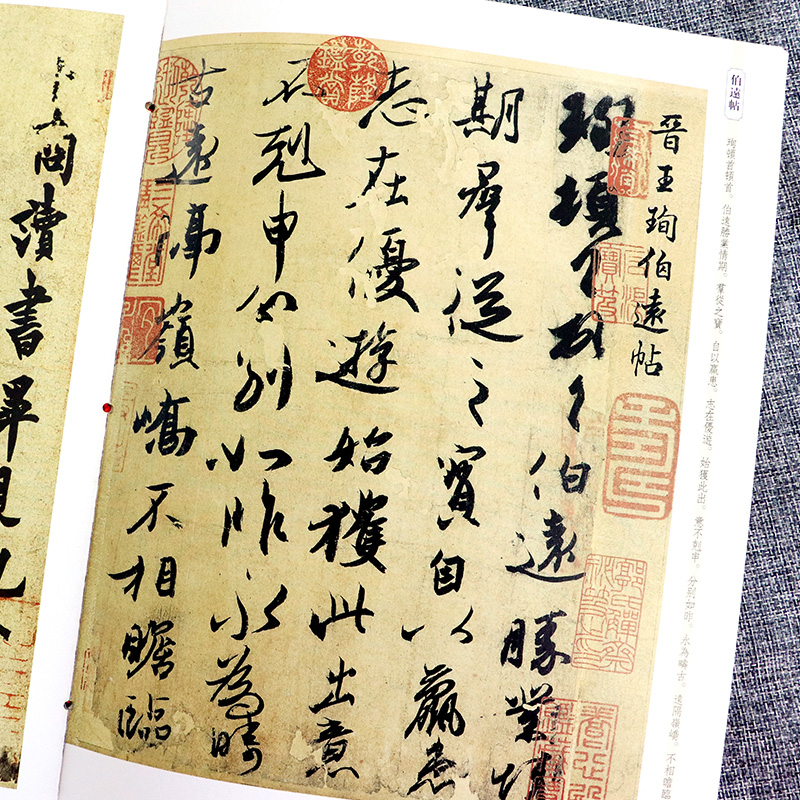 伯遠帖
珣頓首頓首。伯遠勝業情期。羣從之寶。自以羸患。志在優遊。始獲此出。意不剋申。分別如昨。永為疇古。遠隔嶺嶠。不相瞻臨
晉王珣伯遠帖
珣頓首頓首伯遠勝業情
期羣從之寶自以羸患
志在優遊始獲此出意
不剋申分別如昨永為疇
古遠隔嶺嶠不相瞻臨
乾隆鑑賞
三希堂精鑑璽
讀書畢